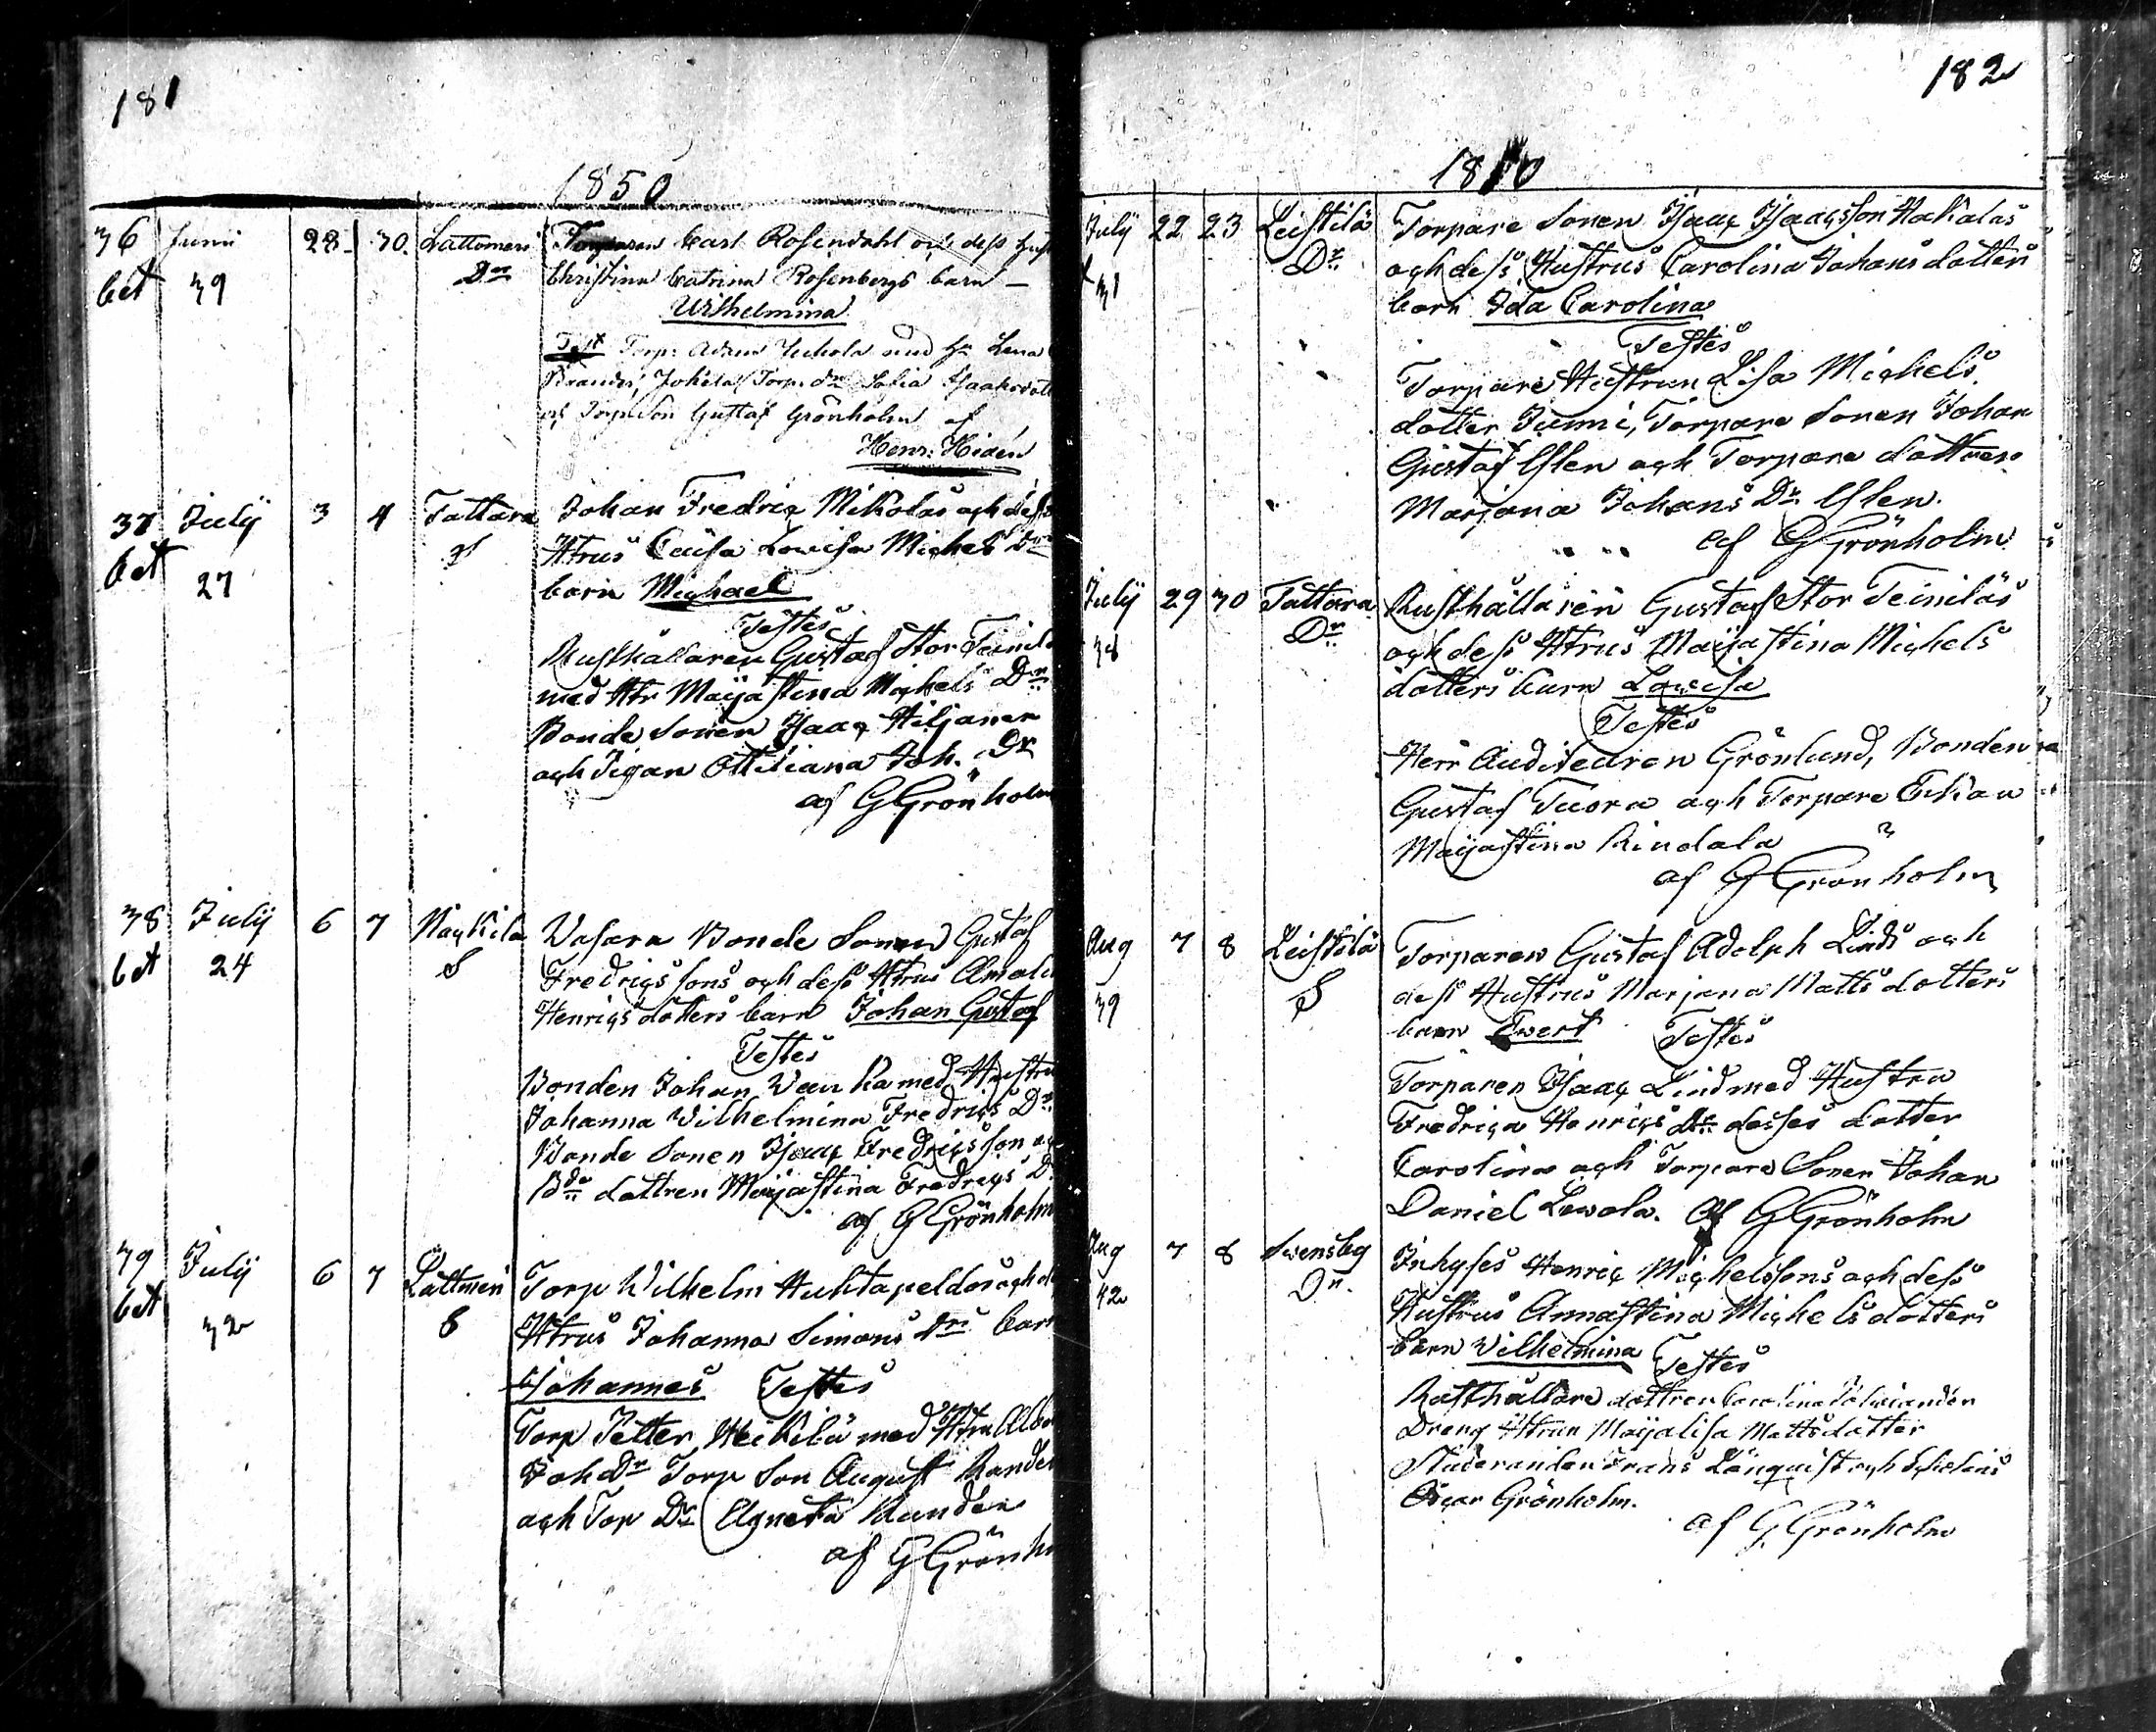 181
1850
36 Junii 28. 30. Lattomeri Torparen Carl Rosendahl och dess Hust
bet 39 Dr Christina Catrina Rosenbergs barn —
Wilhelmina
Test Torp: Adam Juhola med H. Lena
Brander, Torp. dr Sofia Isaaksdott
och Torp Son Gustaf Grönholm af
Henr: Hidén
37 July 3 4 Tattara Johan Fredric Mikolas och dess
bet 27 Htrus Caisa Lowisa Michels Drs
barn Michael
Testes
Rusthållaren Gustaf Stor Teinilä
med Htr Maijastina Michels Dr
Bonde Sonen Isaac Hiljanen
och Pigan Ottiliana Joh. Dr
af G Grönholm
38 July 6 7 Wasara Bonde Sonen Gustaf
bet 24 S Fredricssons och dess Htrus Amalia
Henrics dotters barn Johan Gustaf
Testes
Bonden Johan med Hustru
Johanna Wilhelmina Fredrics Dr
Bonde Sonen Isaac Fredricsson och
Bde dottren Maijastina Fredrics Dr
af G Grönholm
39 July 6 7 Lattmeri Torp Wilhelm Huhtapeldos och
bet 32 S Htrus Johanna Simons Drs barn
Johannes Testes
Torp Petter Heikilä med Htru
Joh Dr Torp Son August Rander
och Tor Dr Agneta Rander
af G Grönh
182
1850
July 22 23 Leistilä Torpare Sonen Isaac Isaacsson Hakalas
31 Dr och dess Hustrus Carolina Johans dotters
barn Ida Carolina
Testes
Torpare Hustrun Lisa Michels
dotter Junni, Torpare Sonen Johan
Gustaf Eflen och Torpare dottren
Marjana Johans Dr Eflen.
af G Grönholm
July 29 30 Tattara Rusthållaren Gustaf Stor Teiniläs
38 Dr och dess Htrus Maijastina Michels
dotters barn Lowisa
Testes
Herr Auditeuren Grönlund, Bonden
Gustaf Tuora och Torpare Enkan
Maijastina Rindala
af G Grönholm
Aug 7 8 Leistilä Torparen Gustaf Adolph Linds och
39 S dess Hustrus Marjana Matts dotters
barn Ewert Testes
Torparen Isaac Lind med Hustru
Fredrica Henrics Dr desses dotter
Carolina och Torpare Sonen Johan
Daniel Lewola. Af G Grönholm
Aug 7 8 Swensbg Inhyses Henric Michelssons och dess
42 Dr. Hustrus Annastina Michels dotters
barn Wilhelmina Testes
Rusthållare dottren Carolina
Dreng Htrun Maijalisa Mattsdotter
Studeranden Frans Lönqvist och
Oscar Grönholm.
af G. Grönholm